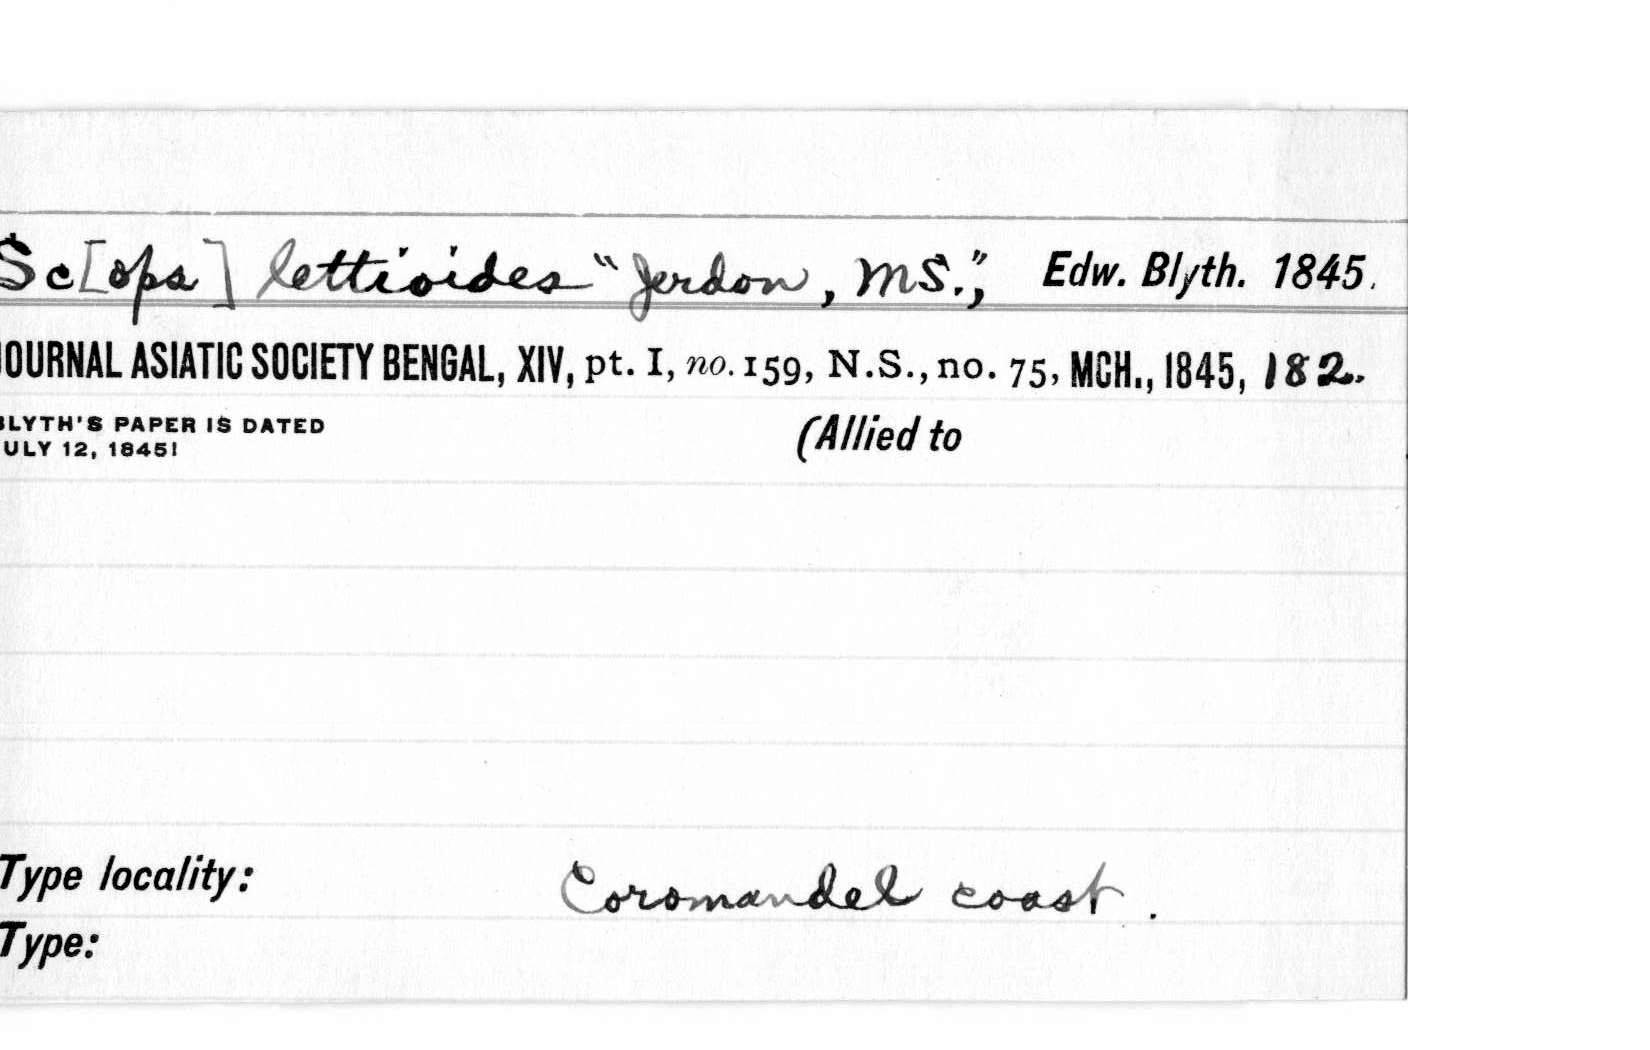 Sc[ops] lettioides "Jerdon, MS.", Edw. Blyth. 1845.
JOURNAL ASIATIC SOCIETY BENGAL, XIV, pt. I, no. 159, N.S., no. 75, MCH., 1845, 182.
BLYTH'S PAPER IS DATED (Allied to
JULY 12, 1845!
Type locality: Coromandel coast.
Type: